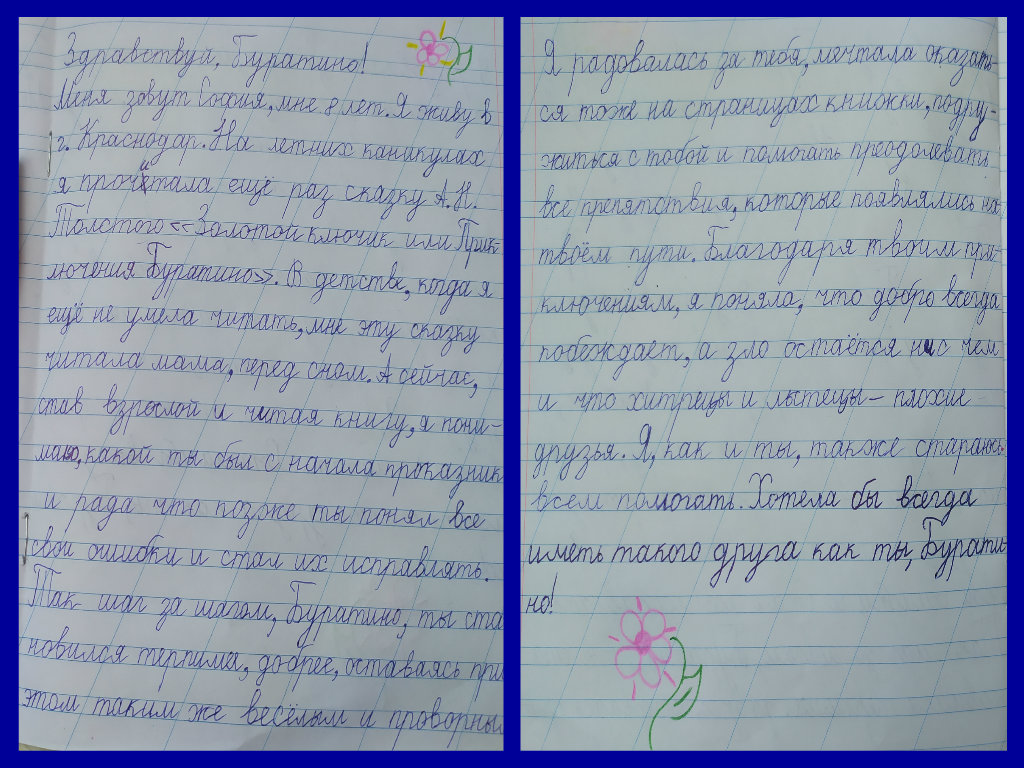 Здравствуй, Буратино!
Меня зовут София, мне 8 лет. Я живу в
г. Краснодар. На летних каникулах
я прочитала ещё раз сказку А.Н.
Толстого <<Золотой ключик или Прик-
лючения Буратино>>. В детстве, когда я
ещё не умела читать, мне эту сказку
читала мама, перед сном. А сейчас,
став взрослой и читая книгу, я пони-
маю, какой ты был с начала проказник
и рада что позже ты понял все
свои ошибки и стал их исправлять.
Так шаг за шагом, Буратино, ты ста
новился терпима, добрее, оставаясь при
этом таким же весёлым и проворным
Я радовалась за тебя, мечтала оказать-
ся тоже на страницах книжки, подру-
житься с тобой и помогать преодолевать
все препятствия, которые появлялись на
твоём пути. Благодаря твоим при-
ключениям, я поняла, что добро всегда
побеждает, а зло остаётся ни с чем
и что хитрецы и льстецы - плохие
друзья. Я, как и ты, также стараюсь
всем помогать. Хотела бы всегда
иметь такого друга как ты, Бурати-
но!